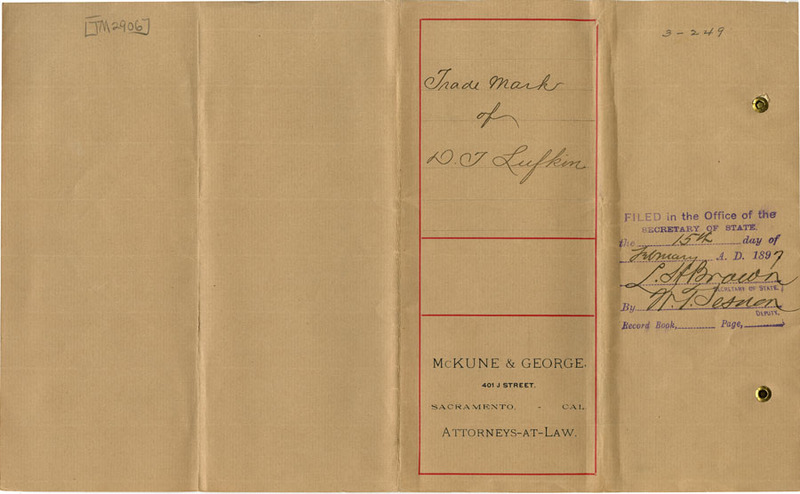 [TM2906]
Trade Mark
of
D. T Lufkin
McKUNE & GEORGE,
401 J STREET.
SACRAMENTO, - CAL.
ATTORNEYS-AT-LAW.
3-249
FILED in the Office of the
SECRETARY OF STATE.
the 15th day of
February A. D. 1897
L. H. Brown
SECRETARY OF STATE.
By W. T. Sesnon
DEPUTY.
Record Book, Page,